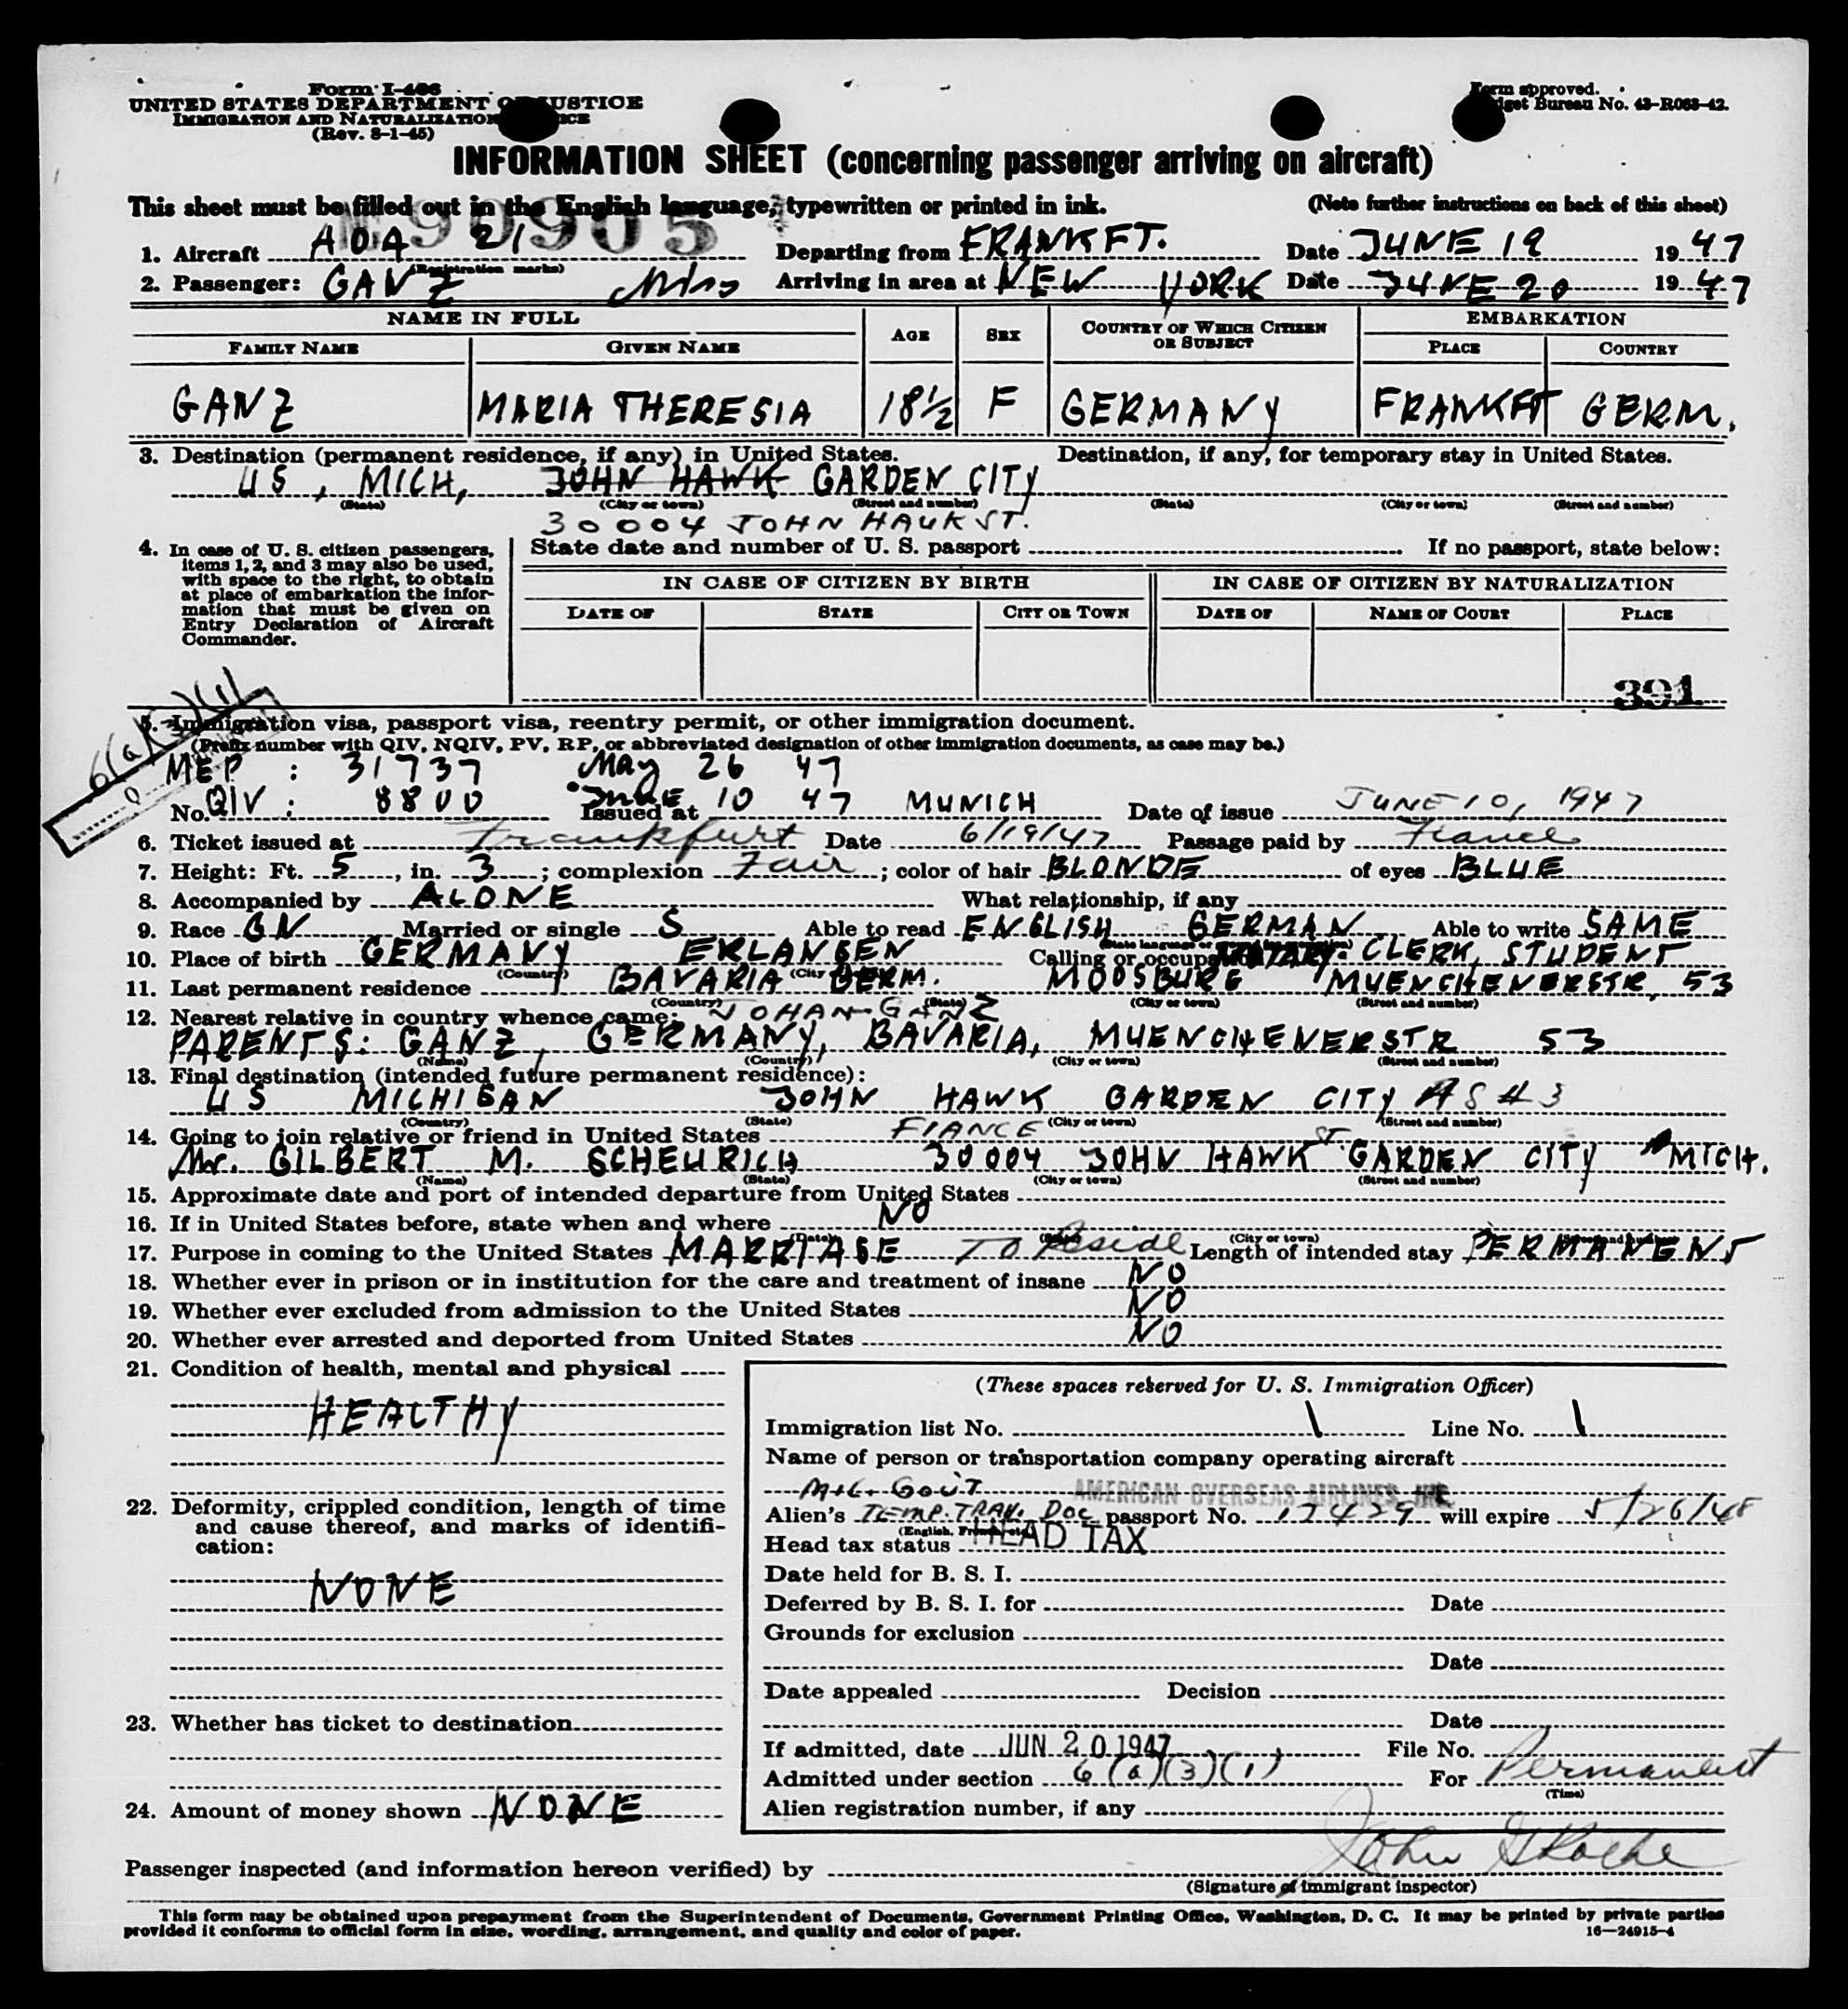 Form I-466
UNITED STATES DEPARTMENT OF JUSTICE
IMMIGRATION AND NATURALIZATION SERVICE
(Rev. 8-1-45)
Form approved.
Budget Bureau No. 43-R063-42.
INFORMATION SHEET (concerning passenger arriving on aircraft)
This sheet must be filled out in the English language, typewritten or printed in ink. (Note further instructions on back of this sheet)
90905
1. Aircraft AOA 21 Departing from FRANKFT. Date JUNE 19 1947
(Registration marks)
2. Passenger: GANZ Miss Arriving in area at NEW YORK Date JUNE 20 1947
NAME IN FULL AGE SEX COUNTRY OF WHICH CITIZEN OR SUBJECT EMBARKATION
FAMILY NAME GIVEN NAME PLACE COUNTRY
GANZ MARIA THERESIA 18 1/2 F GERMANY FRANKFT GERM.
3. Destination (permanent residence, if any) in United States. Destination, if any, for temporary stay in United States.
US, MICH, JOHN HAWK GARDEN CITY
(State) (City or town) (Street and number) (State) (City or town) (Street and number)
30004 JOHN HAUK ST.
4. In case of U. S. citizen passengers, items 1, 2, and 3 may also be used, with space to the right, to obtain at place of embarkation the information that must be given on Entry Declaration of Aircraft Commander.
State date and number of U. S. passport If no passport, state below:
IN CASE OF CITIZEN BY BIRTH IN CASE OF CITIZEN BY NATURALIZATION
DATE OF STATE CITY OR TOWN DATE OF NAME OF COURT PLACE
391
5. Immigration visa, passport visa, reentry permit, or other immigration document.
(Prefix number with QIV, NQIV, PV, RP, or abbreviated designation of other immigration documents, as case may be.)
MEP : 31737 May 26 47
No. QIV : 8800 Issued at June 10 47 MUNICH Date of issue JUNE 10, 1947
6. Ticket issued at Frankfurt Date 6/19/47 Passage paid by Fiance
7. Height: Ft. 5, in. 3; complexion Fair; color of hair BLONDE of eyes BLUE
8. Accompanied by ALONE What relationship, if any
9. Race GN Married or single S Able to read ENGLISH GERMAN Able to write SAME
10. Place of birth GERMANY ERLANGEN Calling or occupation CLERK, STUDENT
(Country) (City
11. Last permanent residence BAVARIA GERM. MOOSBURG MUENCHENERSTR 53
(Country) (State) (City or town) (Street and number)
12. Nearest relative in country whence came: JOHAN GANZ
PARENTS: GANZ, GERMANY, BAVARIA, MUENCHENERSTR 53
(Name) (Country) (City or town) (Street and number)
13. Final destination (intended future permanent residence):
US MICHIGAN JOHN HAWK GARDEN CITY AS #3
(Country) (State) (City or town) (Street and number)
14. Going to join relative or friend in United States FIANCE
Mr. GILBERT M. SCHEURICH 30004 JOHN HAWK ST GARDEN CITY MICH.
(Name) (State) (City or town) (Street and number)
15. Approximate date and port of intended departure from United States
16. If in United States before, state when and where NO
(Date) (City or town)
17. Purpose in coming to the United States MARRIAGE TO Reside Length of intended stay PERMANENT
18. Whether ever in prison or in institution for the care and treatment of insane NO
19. Whether ever excluded from admission to the United States NO
20. Whether ever arrested and deported from United States NO
21. Condition of health, mental and physical
HEALTHY
22. Deformity, crippled condition, length of time and cause thereof, and marks of identification:
NONE
23. Whether has ticket to destination
24. Amount of money shown NONE
(These spaces reserved for U. S. Immigration Officer)
Immigration list No. 1 Line No. 1
Name of person or transportation company operating aircraft
MIL. GOV'T AMERICAN OVERSEAS AIRLINES, INC.
Alien's TEMP. TRAV. DOC passport No. will expire 5/26/48
Head tax status HEAD TAX
Date held for B. S. I.
Deferred by B. S. I. for Date
Grounds for exclusion
Date
Date appealed Decision
Date
If admitted, date JUN 20 1947 File No.
Admitted under section 6(a)(3)(1) For Permanent
(Time)
Alien registration number, if any
Passenger inspected (and information hereon verified) by John
(Signature of immigrant inspector)
This form may be obtained upon prepayment from the Superintendent of Documents, Government Printing Office, Washington, D. C. It may be printed by private parties
provided it conforms to official form in size, wording, arrangement, and quality and color of paper. 16—24915-4